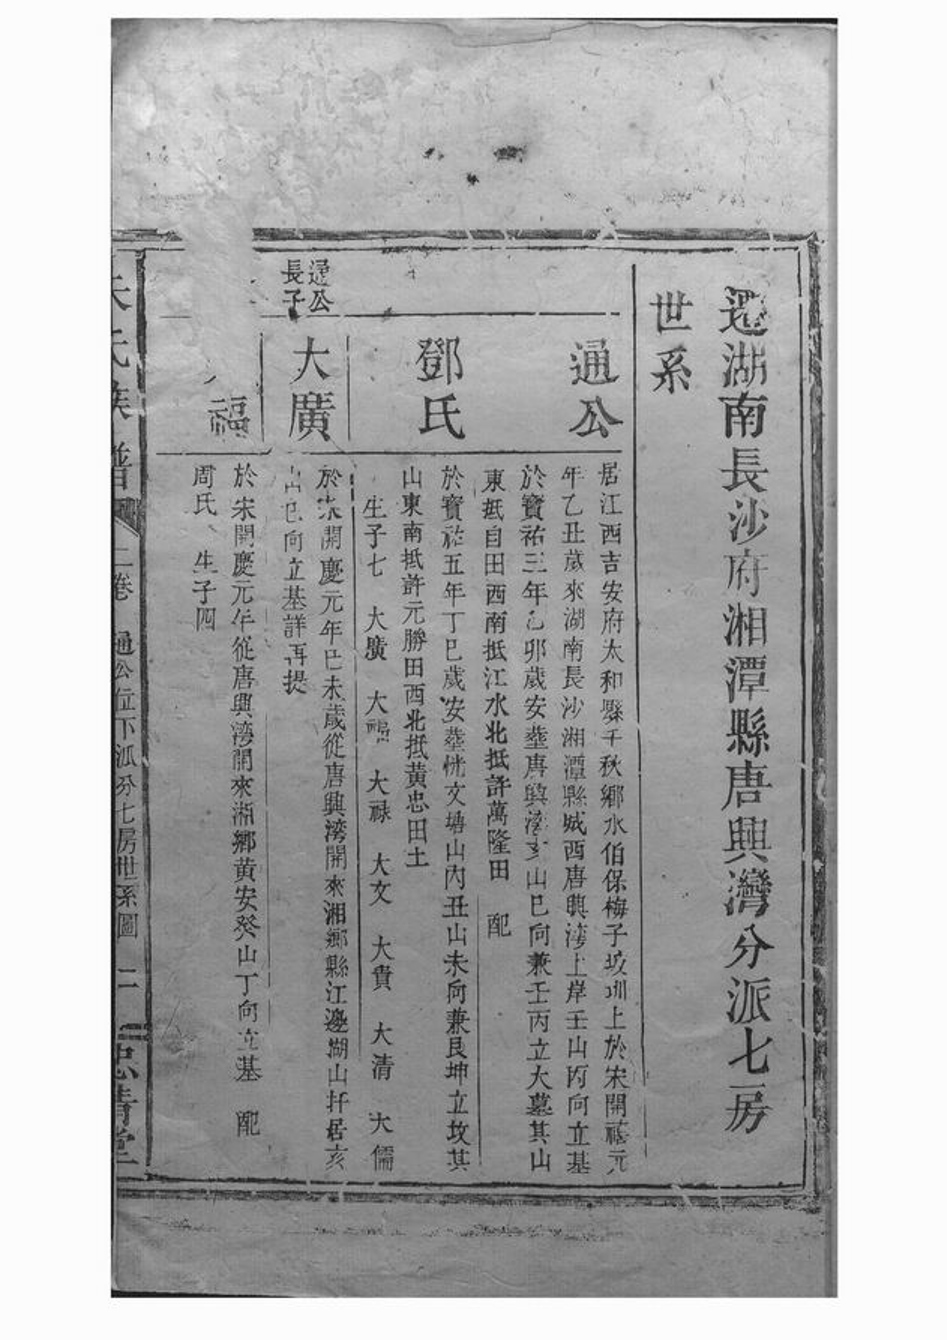 遷湖南長沙府湘潭縣唐興灣分派七房
世系
通公
居江西吉安府太和縣千秋鄉水伯保梅子坡圳上於宋開禧元
年乙丑歲來湖南長沙湘潭縣城西唐興灣上岸壬山丙向立基
於寶祐三年乙卯歲安塟唐興灣亥山巳向兼壬丙立大墓其山
東抵自田西南抵江水北抵許萬隆田 配
鄧氏
於寶祐五年丁巳歲安塟恍文塘山內丑山未向兼艮坤立坟其
山東南抵許元勝田西北抵黄忠田土
生子七 大廣 大福 大禄 大文 大貴 大清 大儒
通公
長子
大廣
於宋開慶元年己未歲從唐興灣開來湘鄉縣江邊湖山扦居亥
山巳向立基詳再提
福
於宋開慶元年從唐興灣開來湘鄉黄安癸山丁向立基 配
周氏 生子四
氏族譜 二卷 通公位下派分七房世系圖 二 忠清堂